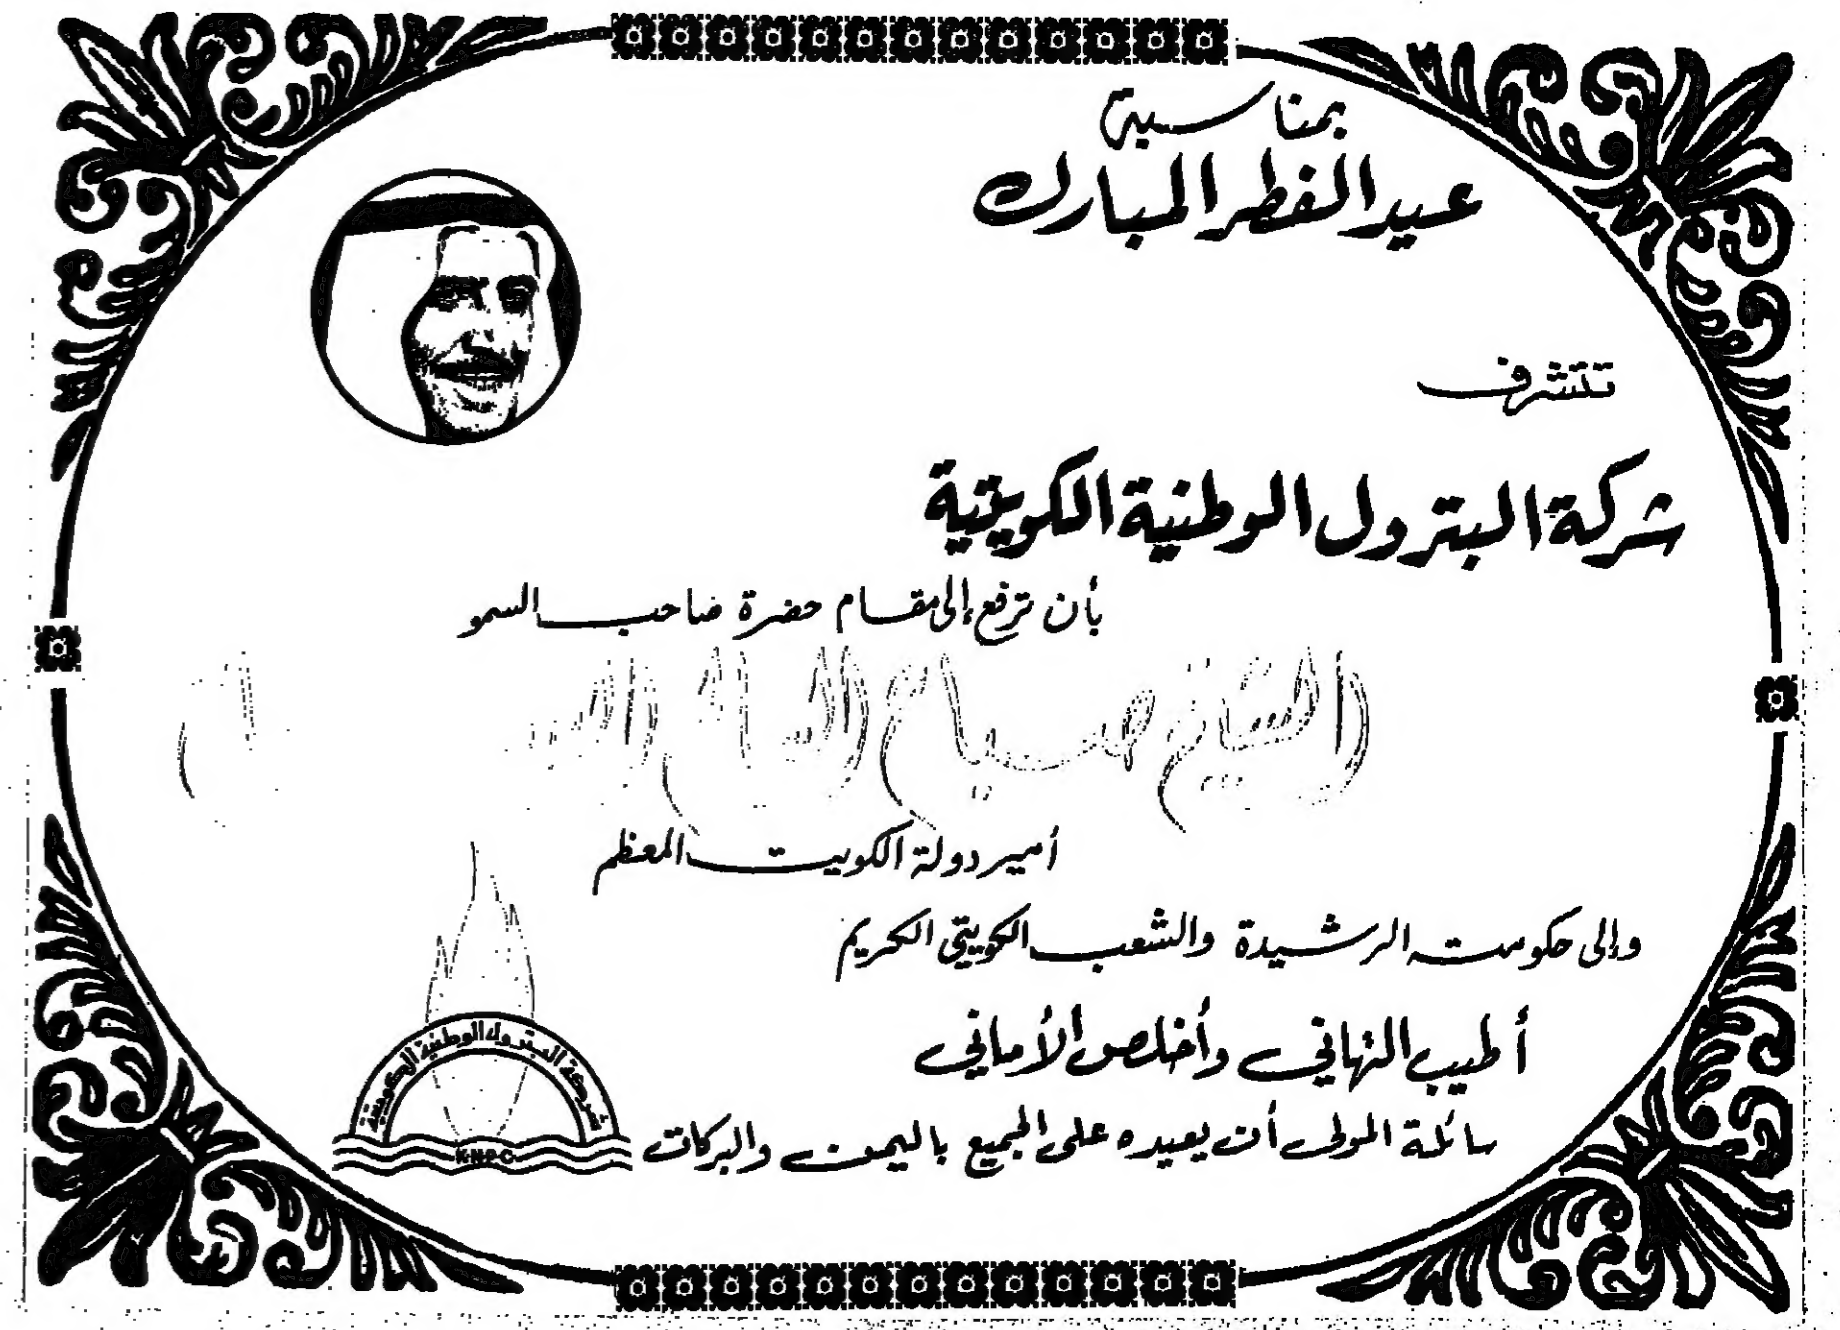 بمناسبة
عيد الفطر المبارك
تتشرف
شركة البترول الوطنية الكويتية
بأن ترفع إلى مقام حضرة صاحب السمو
الشيخ صباح السالم الصباح
أمير دولة الكويت المعظم
وإلى حكومته الرشيدة والشعب الكويتي الكريم
أطيب التهاني وأخلص الأماني
سائلة المولى أن يعيده على الجميع باليمن والبركات
شركة البترول الوطنية الكويتية
K.N.P.C.